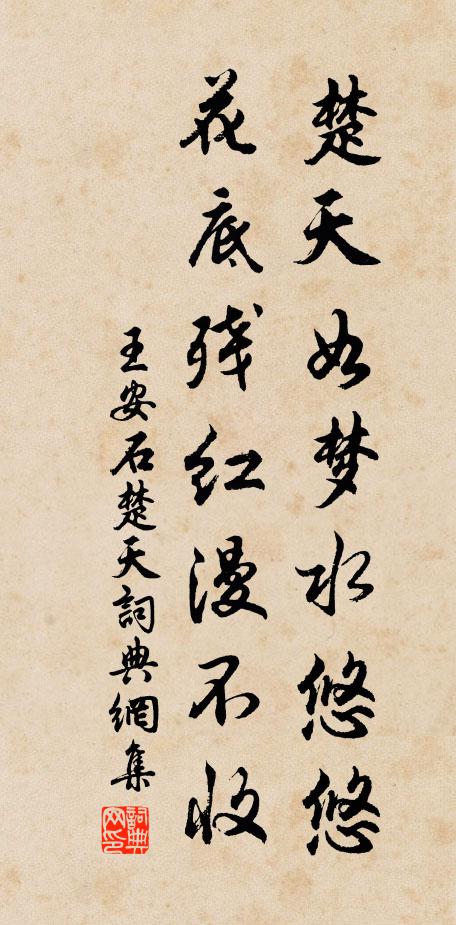 楚天如梦水悠悠
花底残红漫不收
王安石楚天詞典網集
詞典网印